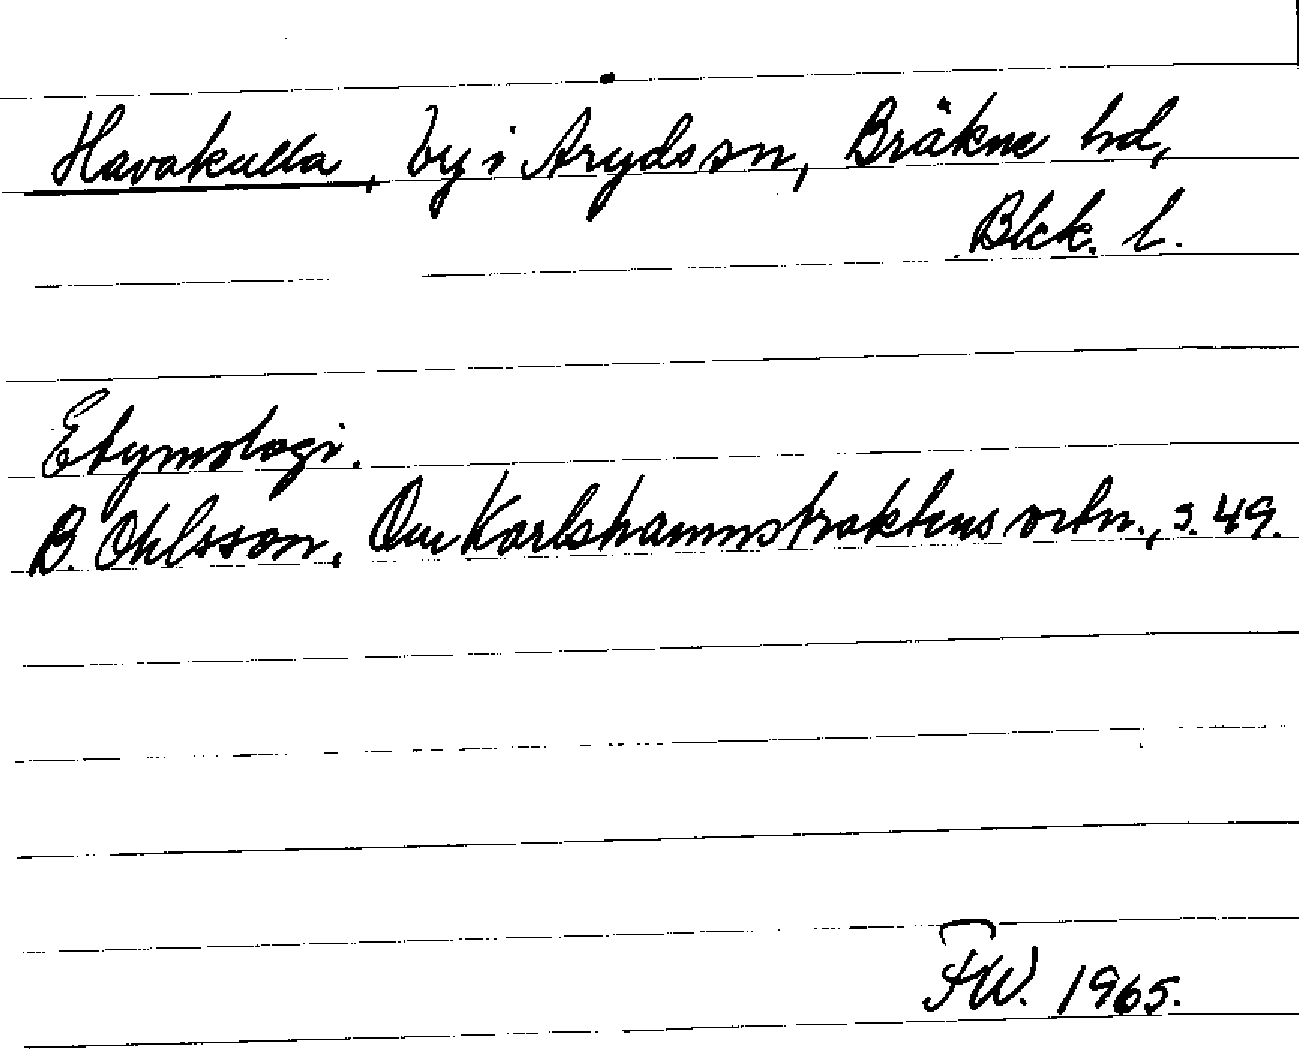 Havakulla, by i Aryds sn, Bräkne hd,
Blek. l.
Etymologi.
B. Ohlsson, Om Karlshamnstraktens ortn., s. 49.
FW. 1965.